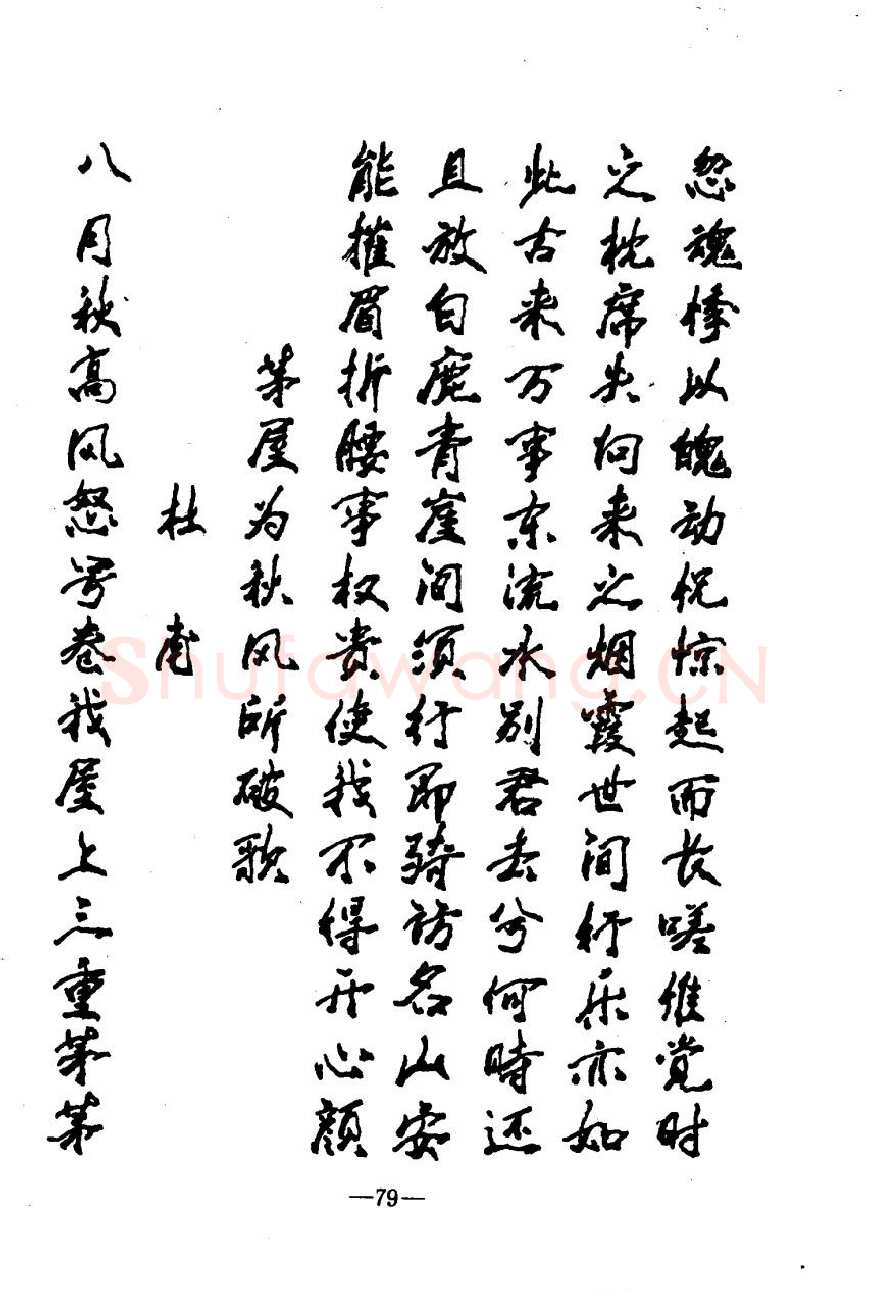 忽魂悸以魄动恍惊起而长嗟惟觉时
之枕席失向来之烟霞世间行乐亦如
此古来万事东流水别君去兮何時还
且放白鹿青崖间须行即骑访名山安
能摧眉折腰事权贵使我不得开心颜
茅屋为秋风所破歌
杜甫
八月秋高风怒号卷我屋上三重茅茅
—79—
Shufawang.CN